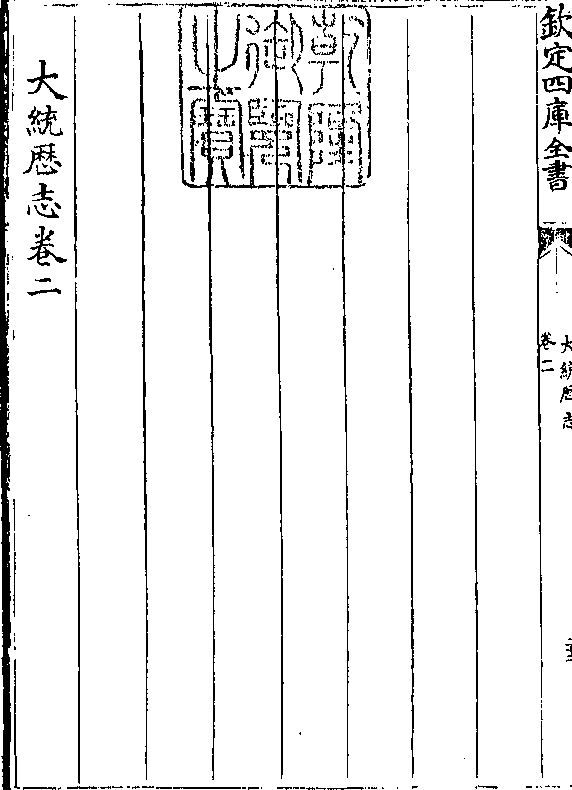 欽定四庫全書
大統歴志
卷二
乾隆
御覽
之寶
大統歴志卷二